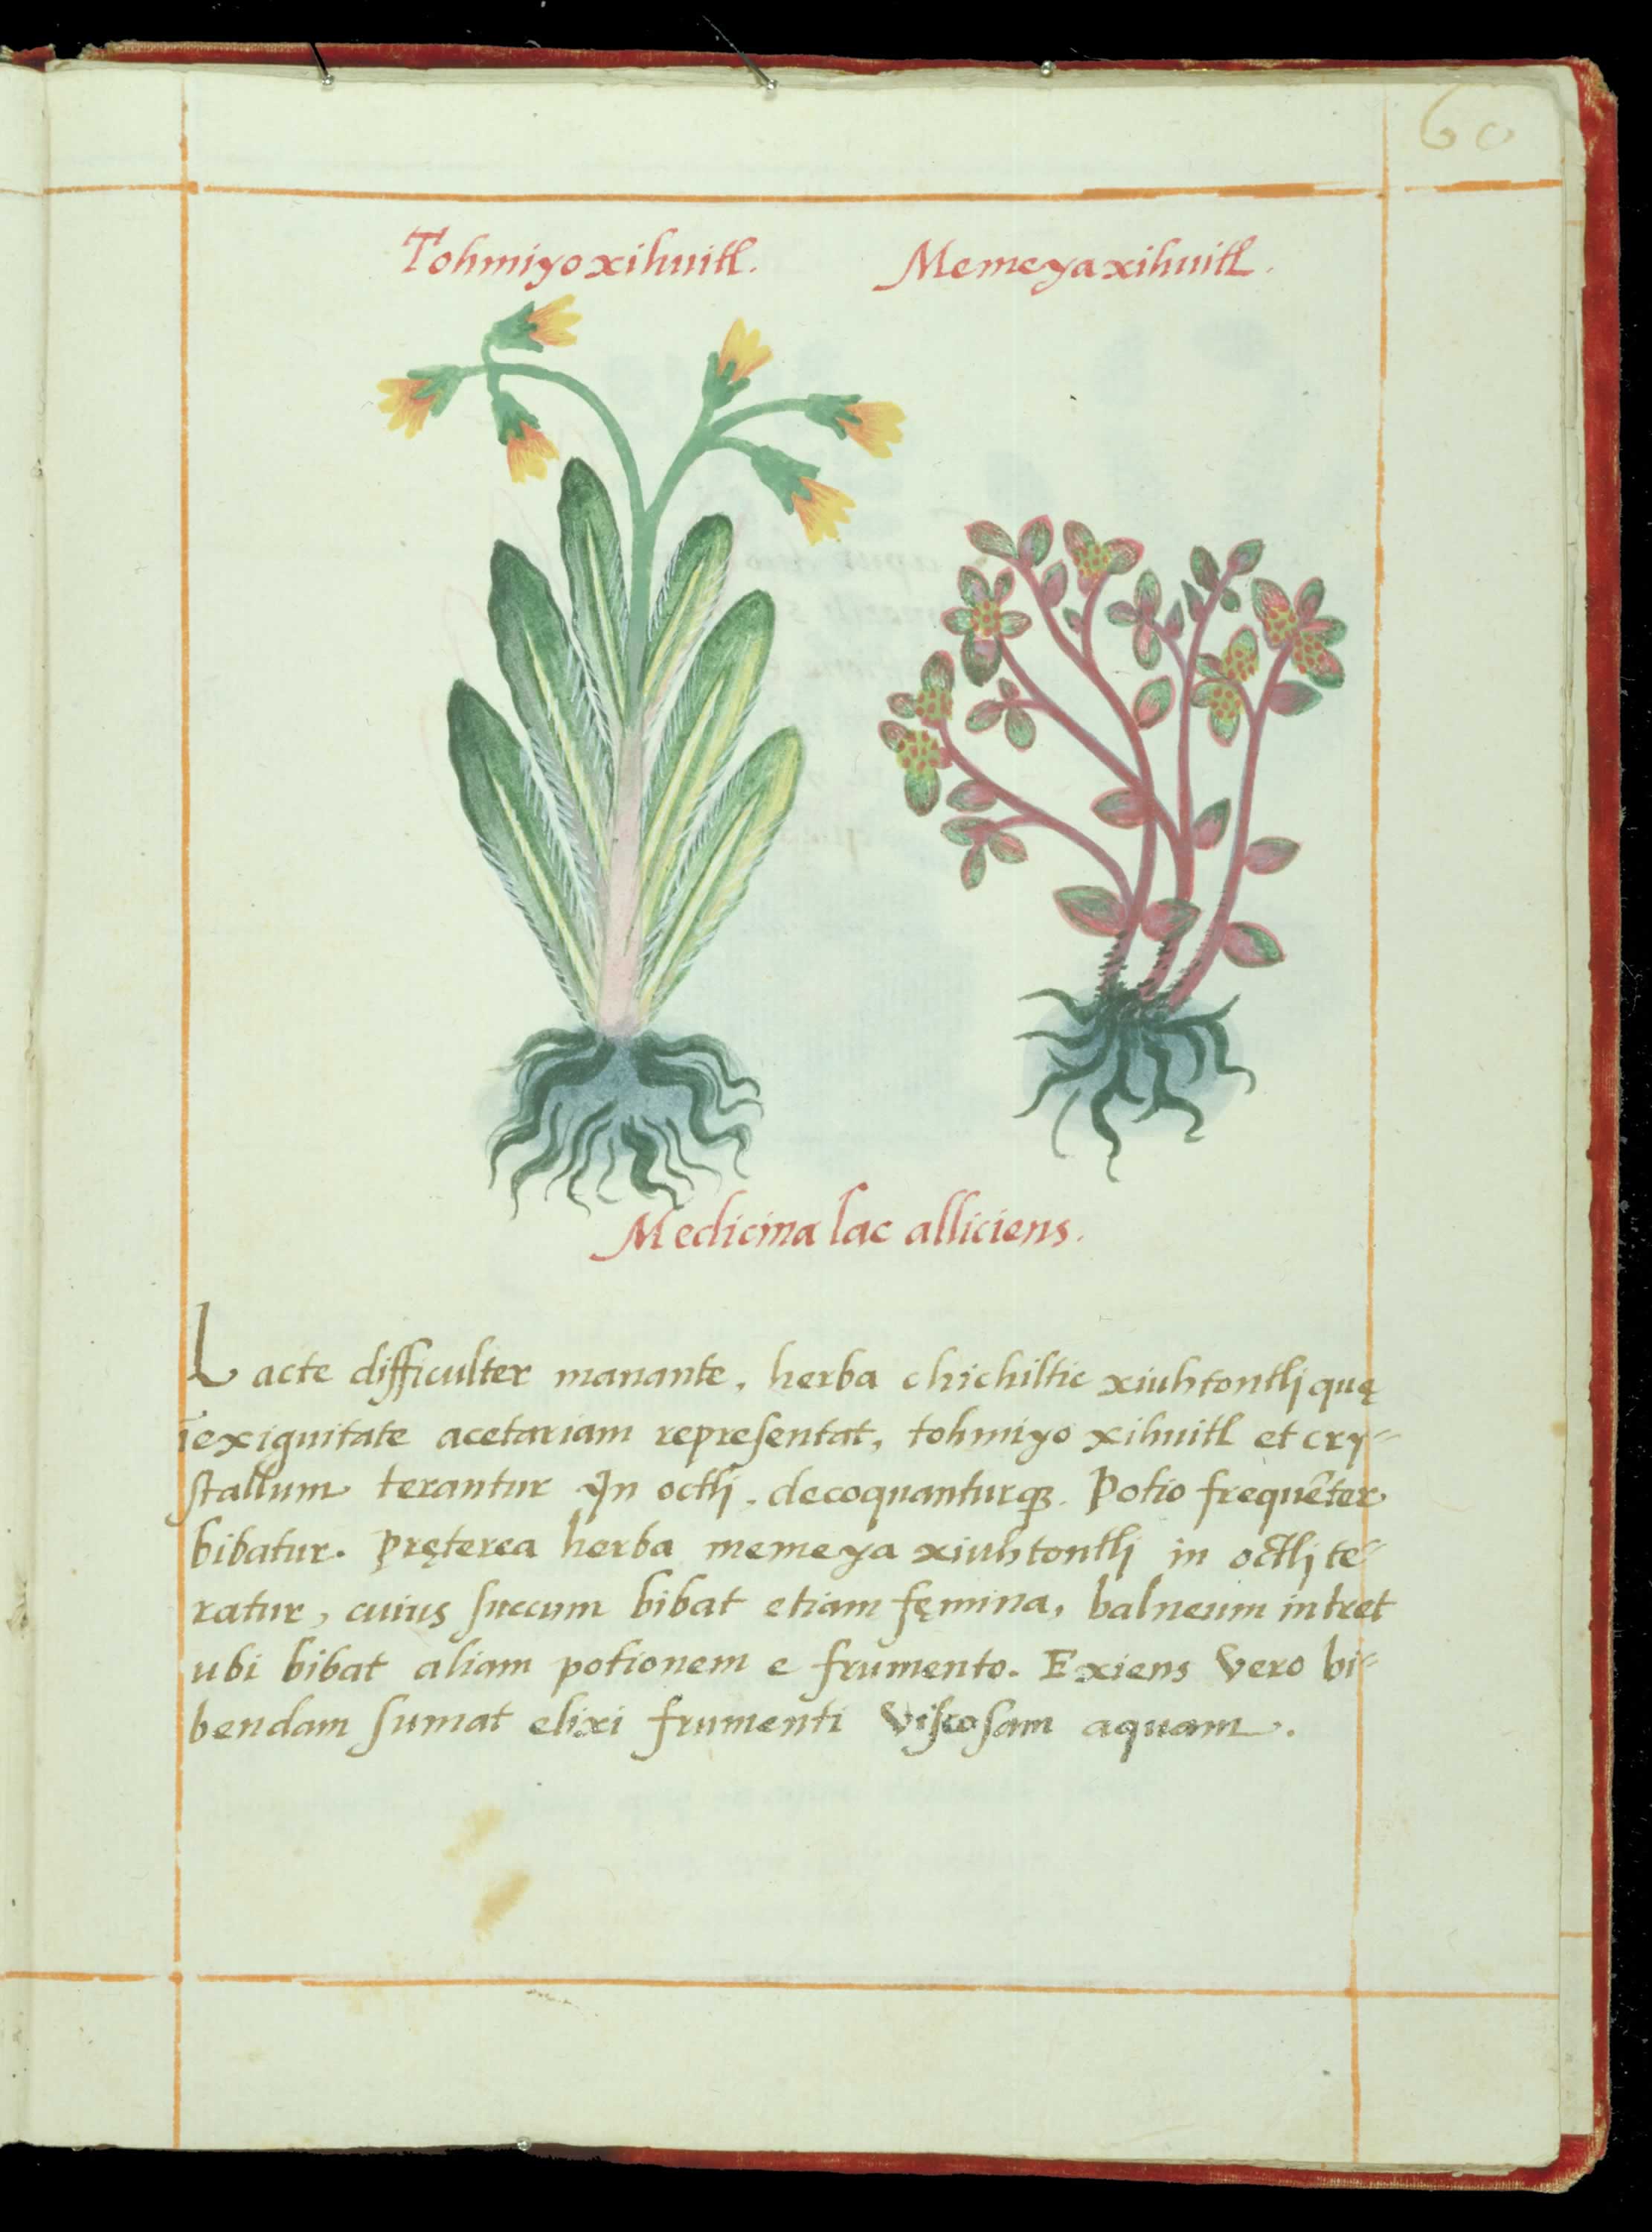 60
Tohmiyoxihuitl. Memeyaxihuitl.
Medicina lac alliciens.
Lacte difficulter manante, herba chichiltic xiuhtontlj quę
exiguitate acetariam repreſentat, tohmiyo xihuitl et cry=
ſtallum terantur In octlj, decoquanturqꝫ. Potio frequẽter
bibatur. Pręterea herba memeya xiuhtontlj in octlj te=
ratur, cuius ſuccum bibat etiam fęmina, balneum intret
ubi bibat aliam potionem e frumento. Exiens vero bi=
bendam ſumat elixi frumenti viſcoſam aquam.